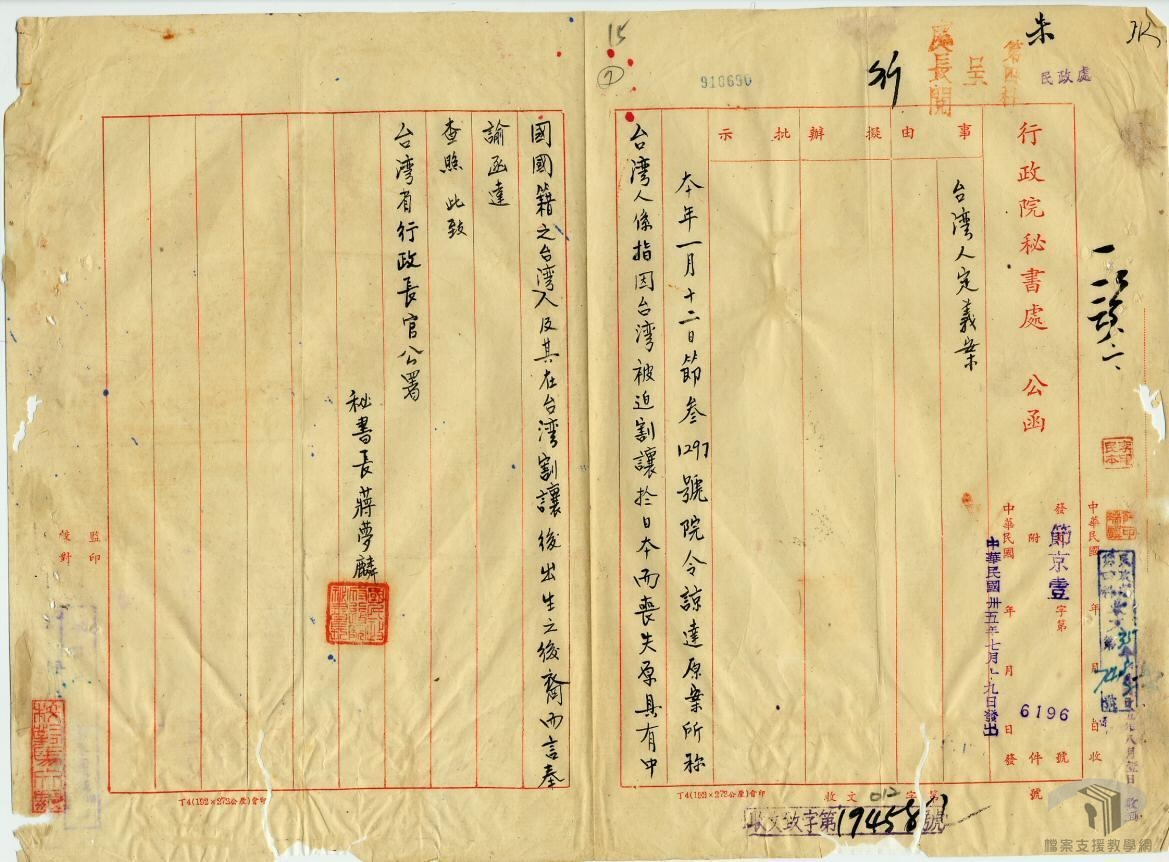 朱
民政處
910690
15
行政院秘書處 公函
事由
擬辦
批示
台湾人定義案
發 附
節京壹字第 6196 號
件
中華民國 年 月 日發
中華民國卅五年七月 九日發出
中華民國 年 月 日收
號
本年一月十二日節叁1297號院令諒達原案所称
台湾人係指因台湾被迫割讓於日本而喪失原具有中
國國籍之台湾人及其在台湾割讓後出生之後裔而言奉
諭函達
查照 此致
台湾省行政長官公署
秘書長蔣夢麟
監印
校對
丁4(192×272公厘)會印
丁4(192×272公厘)會印
收文 字第
收文致字第19458號
檔案支援教學網